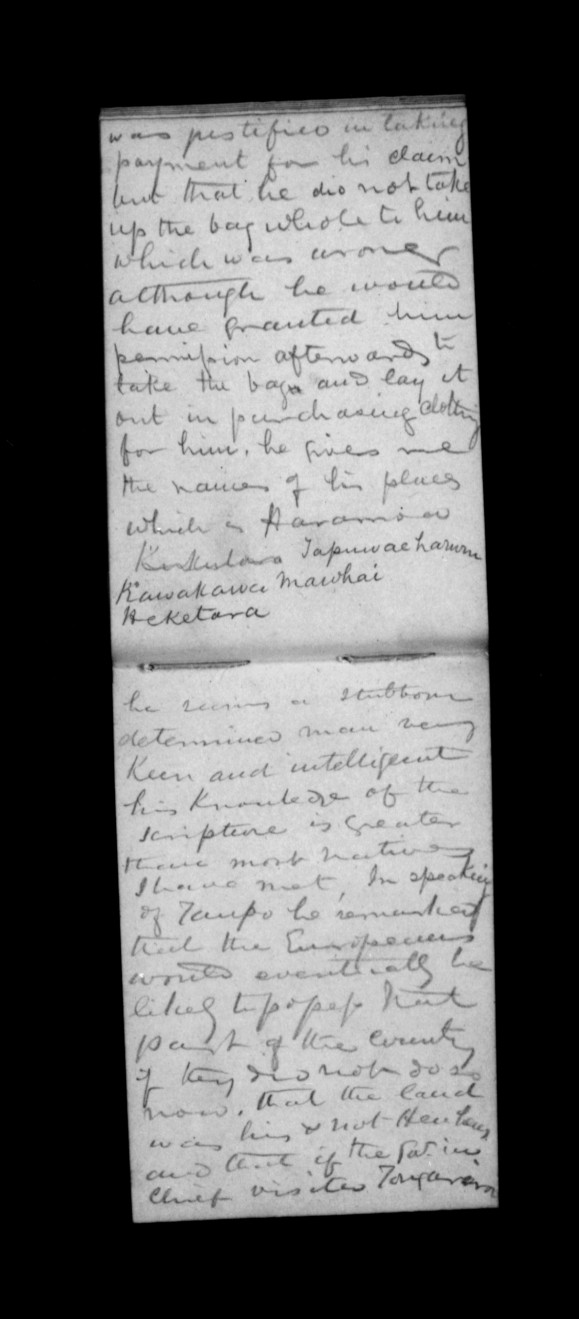 was justified in taking
payment for his claim
but that he did not take
up the bag whole to him
which was wrong
although he would
have granted him
permission afterwards to
take the bag and lay it
out in purchasing clothing
for him. he gives me
the names of his places
which is
Tapuwaeharuru
Kawakawa Mawhai
Heketara
he seems a stubborn
determined man very
Keen and intelligent
his Knowledge of the
scripture is greater
than most natives
I have met, In speaking
of Taupo he remarked
that the Europeans
would eventually be
likely to possess that
part of the country
if they did not do so
now. that the land
was his & not
and that if the Gov. in
chief visited Tongariro